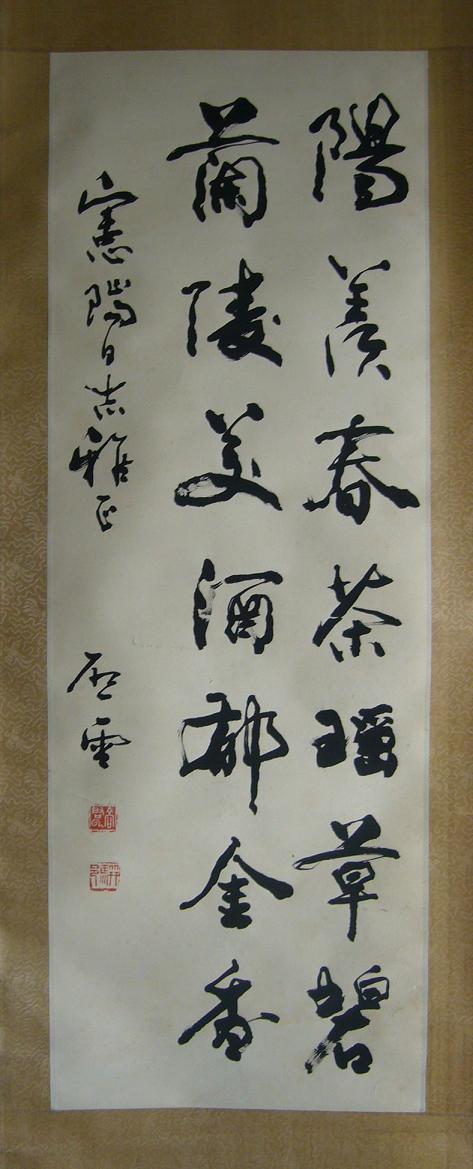 陽羨春茶瑤草碧
蘭陵美酒郁金香
憲陽同志雅正